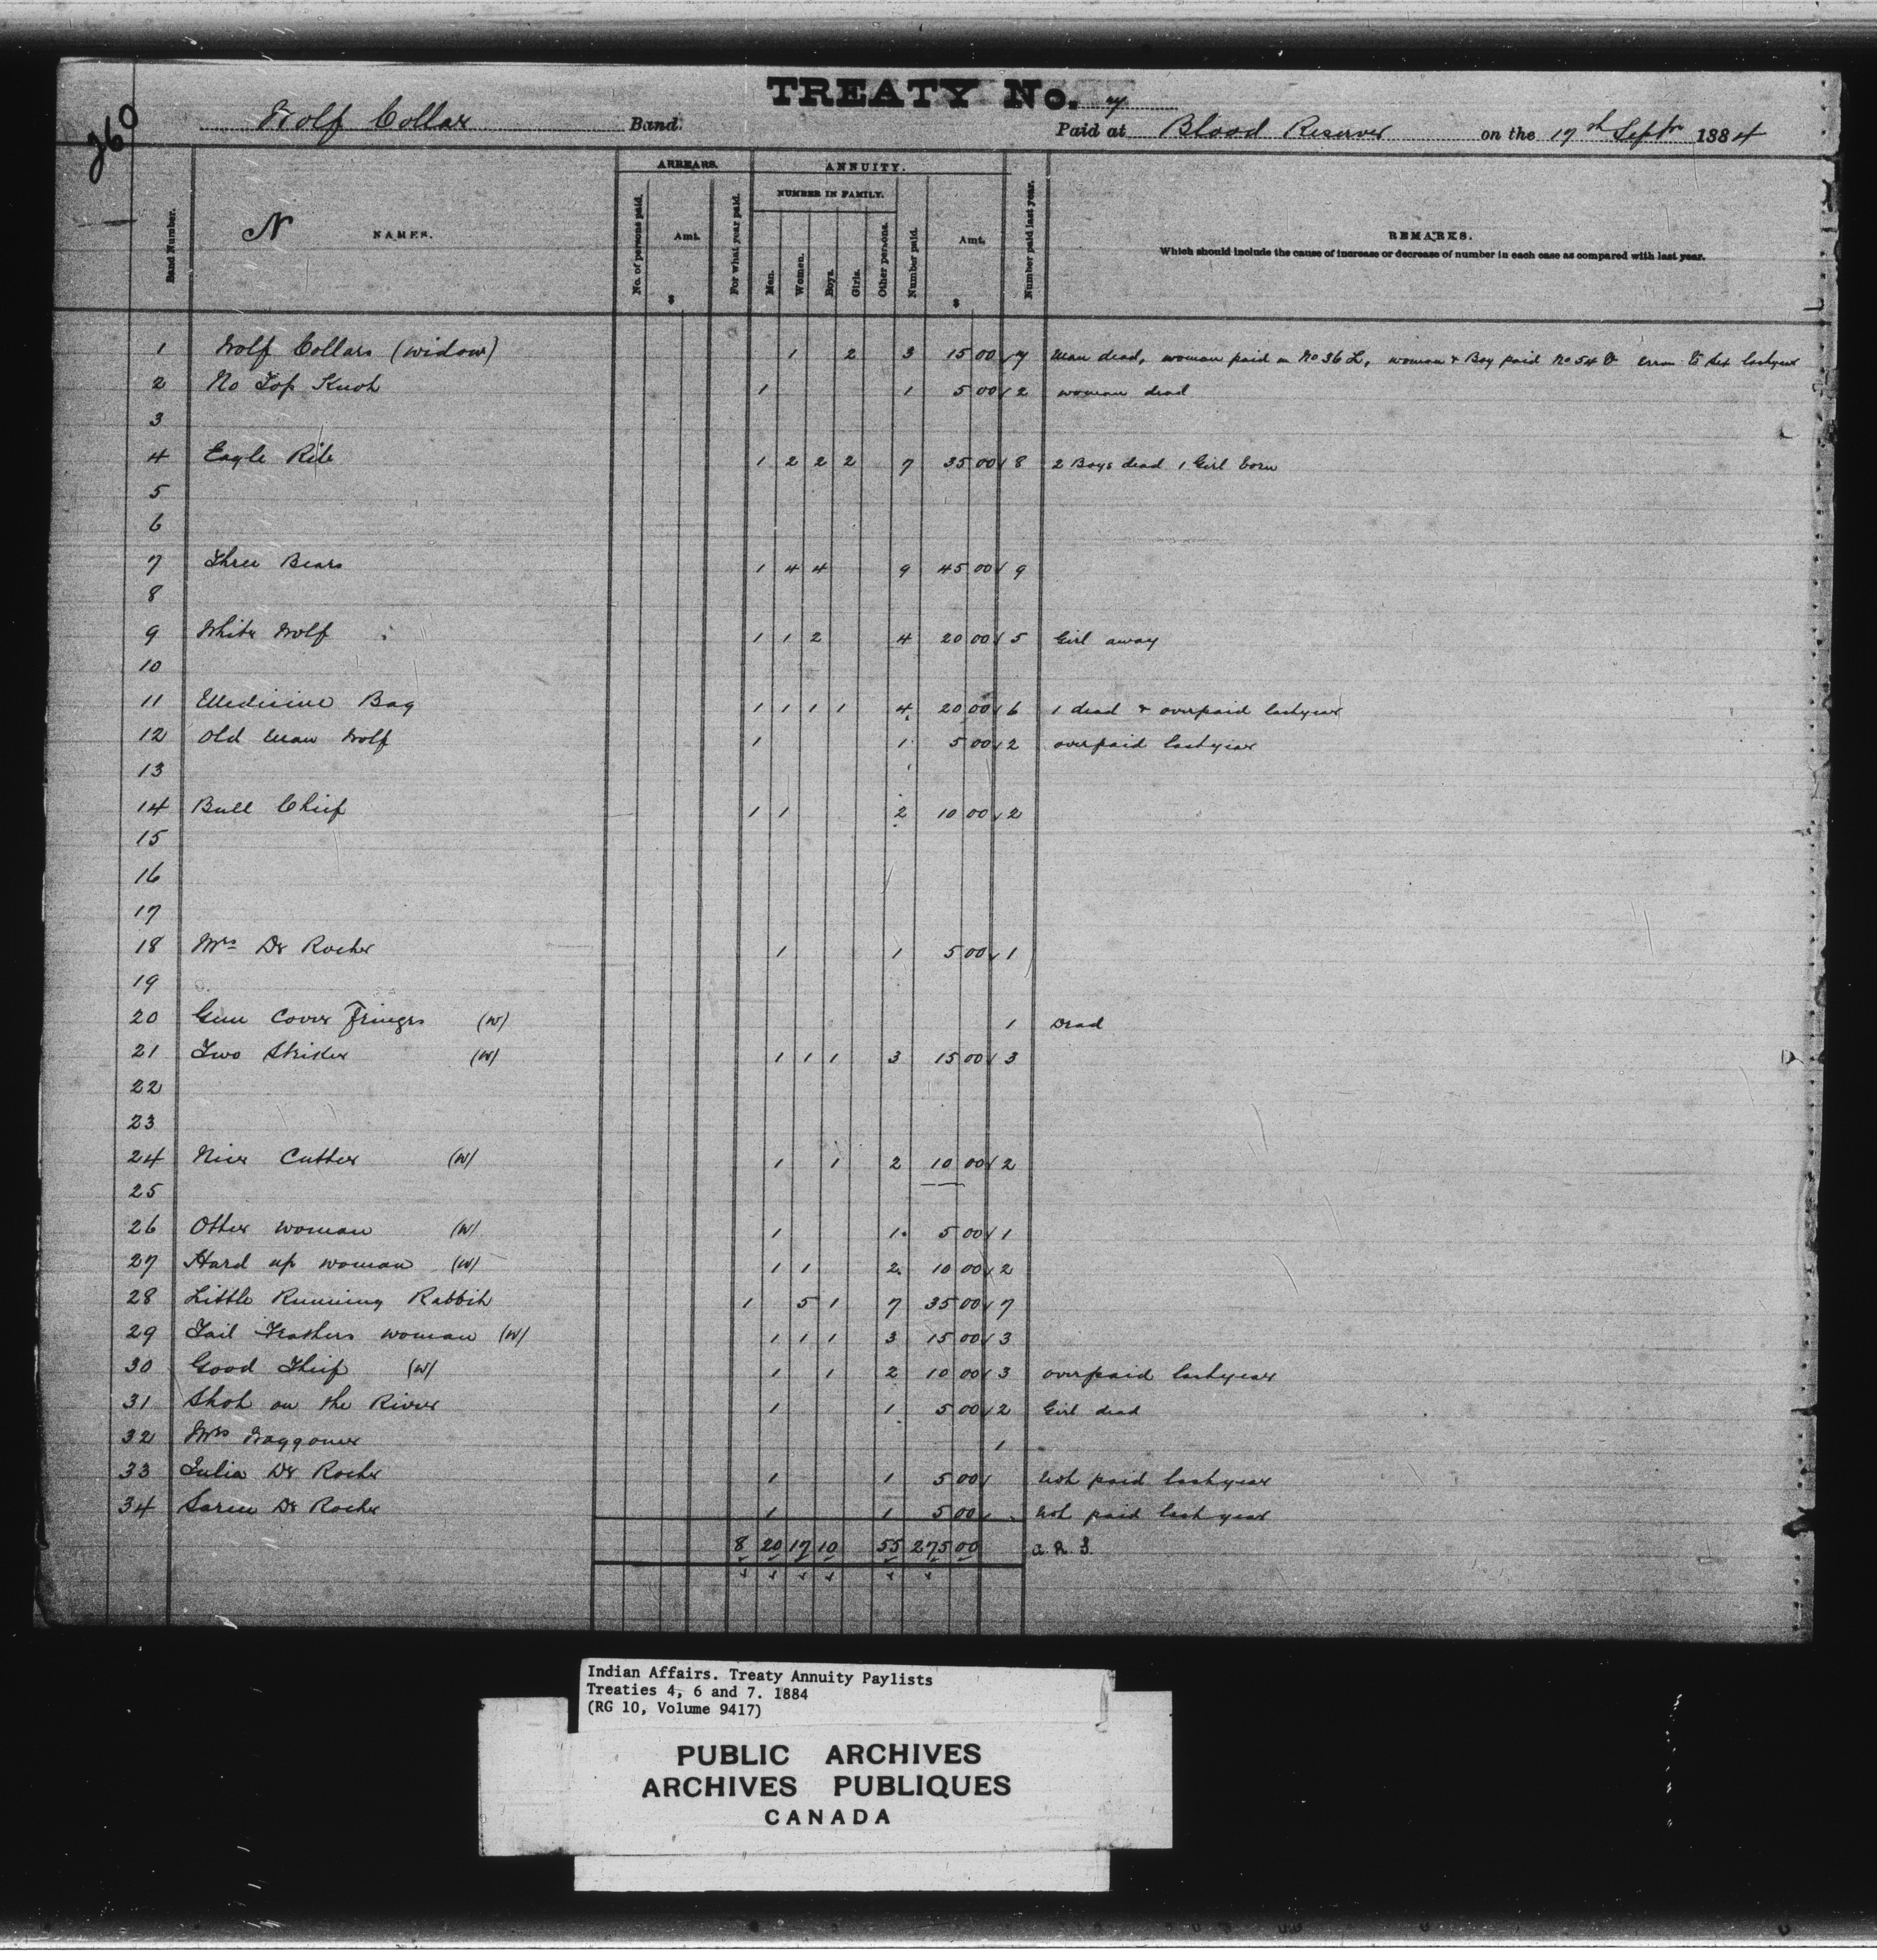 TREATY No. 7
260
Wolf Collar Band. Paid at Blood Reserve on the 17th Septr 1884
Band Number. N NAMES. ARREARS. No. of persons paid. Amt. $ For what year paid. ANNUITY. NUMBER IN FAMILY. Men. Women. Boys. Girls. Other persons. Number paid. Amt. $ Number paid last year. REMARKS.
Which should include the cause of increase or decrease of number in each case as compared with last year.
1 Wolf Collars (widow) 1 2 3 15 00 7 Man dead, woman paid in No 36 L, woman & Boy paid No 54 error to sex lastyear
2 No Top Knot 1 1 5 00 2 woman dead
3
4 Eagle Rib 1 2 2 2 7 35 00 8 2 Boys dead 1 Girl born
5
6
7 Three Bears 1 4 4 9 45 00 9
8
9 White Wolf 1 1 2 4 20 00 5 Girl away
10
11 Medicine Bag 1 1 1 1 4 20 00 6 1 dead & overpaid lastyear
12 Old Man Wolf 1 1 5 00 2 overpaid lastyear
13
14 Bull Chief 1 1 2 10 00 2
15
16
17
18 Mrs De Roche 1 1 5 00 1
19
20 Gun Cover Fringes (W) 1 Dead
21 Two Striker (W) 1 1 1 3 15 00 3
22
23
24 Nice Cutter (W) 1 1 2 10 00 2
25
26 Otter woman (W) 1 1 5 00 1
27 Hard up woman (W) 1 1 2 10 00 2
28 Little Running Rabbit 1 5 1 7 35 00 7
29 Tail Feathers woman (W) 1 1 1 3 15 00 3
30 Good Thief (W) 1 1 2 10 00 3 overpaid lastyear
31 Shot on the River 1 1 5 00 2 Girl dead
32 Mrs Waggoner 1
33 Julia De Roche 1 1 5 00 Not paid lastyear
34 De Roche 1 1 5 00 Not paid last year
8 20 17 10 55 275 00
Indian Affairs. Treaty Annuity Paylists
Treaties 4, 6 and 7. 1884
(RG 10, Volume 9417)
PUBLIC ARCHIVES
ARCHIVES PUBLIQUES
CANADA